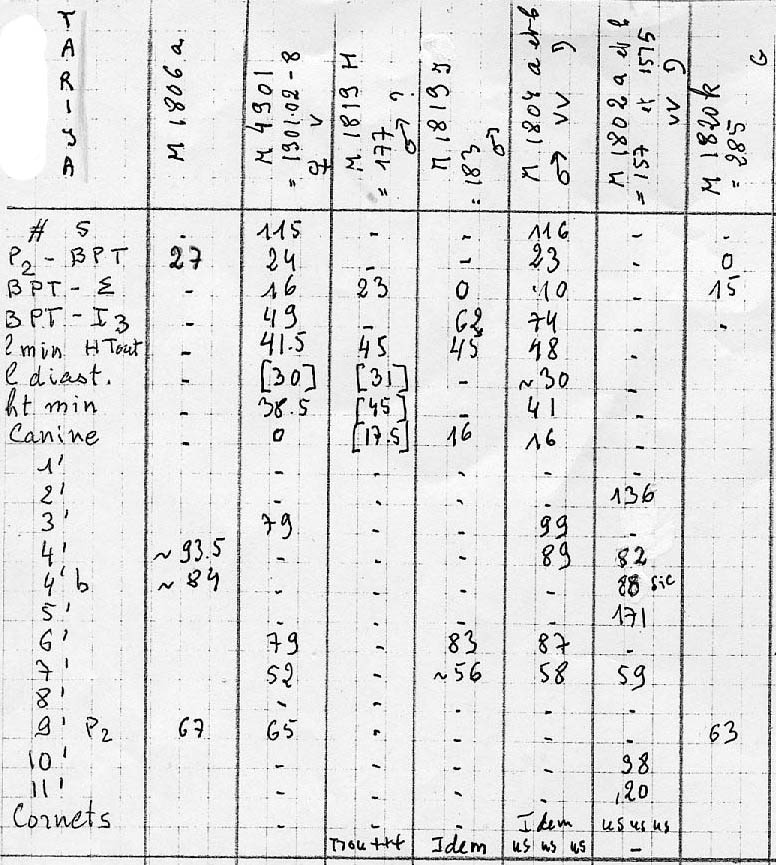 TARIJA
M 1806 a
M 4901 = 130102-8 ♀ V
M 1819 H = 177 ♂ ?
M 1819 J = 183 ♂
M 1804 a et b ♂ VV D
M 1802 a et b = 157 et 1515 VV D
M 1820 k = 285 G
# S - 115 - - 116 - -
P2 - BPT 27 24 - - 23 - 0
BPT - Σ - 16 23 0 10 - 15
BPT - I3 - 49 - 62 74 - -
l min HTout - 41.5 45 45 48 -
l diast. - [30] [31] - ~30 -
ht min - 38.5 [45] - 41 -
Canine - 0 [17.5] 16 16 -
1' - - - - -
2' - - - - 136
3' 79 - - 99 -
4' ~93.5 - - - 89 82
4' b ~84 - - - - 88 sic
5' - - - - 171
6' 79 - 83 87 -
7' 52 - ~56 58 59
8' - - - - -
9' P2 67 65 - - - - 63
10' - - - - 98
11' - - - - 20
Cornets - - - Idem us us us
Trou +++ Idem us us us -